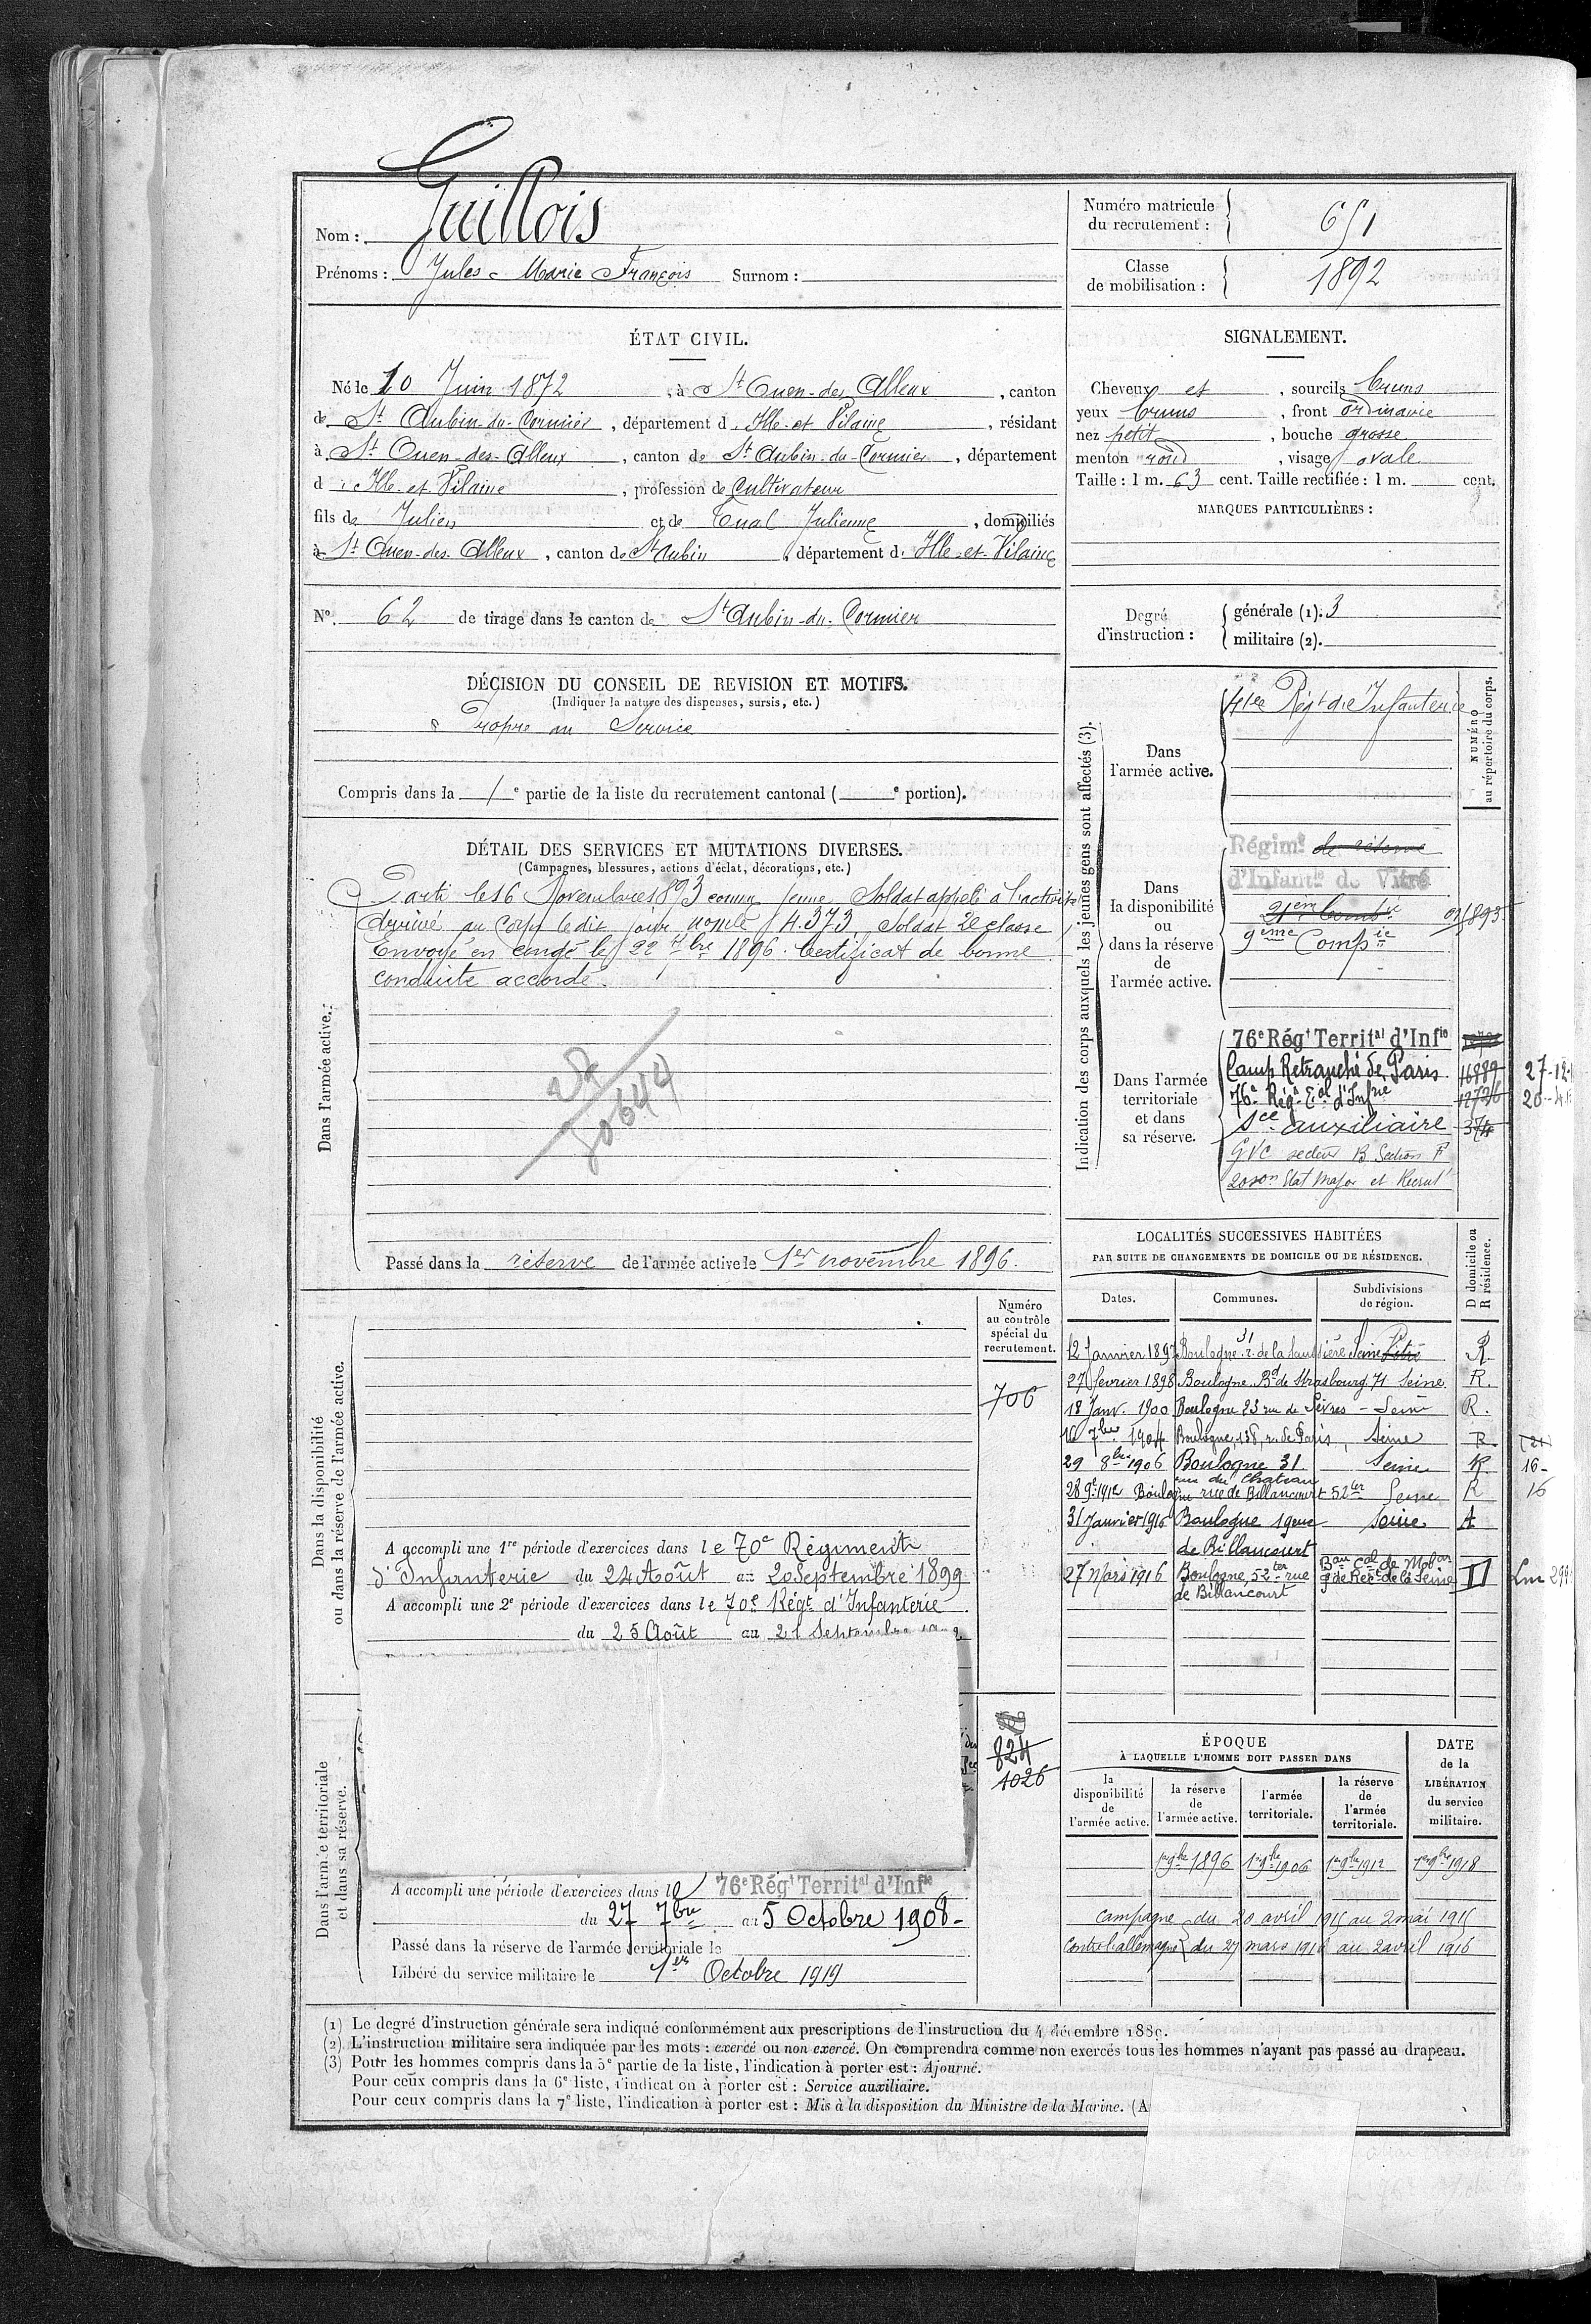 Nom : Guillois
Prénoms : Jules Marie François Surnom :
Numéro matricule du recrutement : 651
Classe de mobilisation : 1892
ÉTAT CIVIL.
Né le 10 Juin 1872, à St Ouen-des-Alleux, canton
de St Aubin-du-Cormier, département d'Ille-et-Vilaine, résidant
à St Ouen-des-Alleux, canton de St Aubin-du-Cormier, département
d'Ille-et-Vilaine, profession de Cultivateur
fils de Julien et de Tual Julienne, domiciliés
à St Ouen-des-Alleux, canton de St Aubin, département d'Ille-et-Vilaine
SIGNALEMENT.
Cheveux et, sourcils bruns
yeux bruns, front ordinaire
nez petit, bouche grosse
menton rond, visage ovale
Taille : 1 m. 63 cent. Taille rectifiée : 1 m. cent.
MARQUES PARTICULIÈRES :
N° 62 de tirage dans le canton de St Aubin-du-Cormier
Degré d'instruction : générale (1). 3
militaire (2).
DÉCISION DU CONSEIL DE REVISION ET MOTIFS.
(Indiquer la nature des dispenses, sursis, etc.)
Propre au Service
Compris dans la 1e partie de la liste du recrutement cantonal ( e portion).
DÉTAIL DES SERVICES ET MUTATIONS DIVERSES.
(Campagnes, blessures, actions d'éclat, décorations, etc.)
Dans l'armée active.
Parti le 16 Novembre 1893 comme jeune Soldat appelé à l'activité
Arrivé au Corps le dit jour nomle 4.373. Soldat 2e classe
Envoyé en congé le 22 7bre 1896. Certificat de bonne
conduite accordé.
Passé dans la réserve de l'armée active le 1er novembre 1896.
Indication des corps auxquels les jeunes gens sont affectés (3).
NUMÉRO au répertoire du corps.
Dans l'armée active.
41e Régt d'Infanterie
Dans la disponibilité ou dans la réserve de l'armée active.
Régimt de réserve
d'Infantie de Vitré
9eme Compie
Dans l'armée territoriale et dans sa réserve.
76e Régt Territal d'Infie
Camp Retranché de Paris 16889
76e Régt Eal d'Infrie 12726
Sce auxiliaire 374
GVC secteur B Section F
20 son Etat Major et Recrut
27-12-
LOCALITÉS SUCCESSIVES HABITÉES
PAR SUITE DE CHANGEMENTS DE DOMICILE OU DE RÉSIDENCE.
D domicile ou R résidence.
Dates. Communes. Subdivisions de région.
12 Janvier 1897 Boulogne 31 r. de la Seine Vitré R.
27 février 1898 Boulogne Bd de Strasbourg 71 Seine R.
18 Janv. 1900 Boulogne 23 rue de Sèvres - Seine R.
16 7bre 1904 Boulogne, 138, r. de Paris, Seine R.
29 8bre 1906 Boulogne 31 rue du Chateau Seine R 16-
28 9e 1912 Boulogne rue de Billancourt 52ter Seine R 16
31 Janvier 1916 Boulogne de Billancourt Seine
27 Mars 1916 Boulogne, 52ter rue de Billancourt Bau Cal de Mobon de Rect de la Seine
Dans la disponibilité ou dans la réserve de l'armée active.
Numéro au contrôle spécial du recrutement.
706
A accompli une 1re période d'exercices dans le 70e Régiment
d'Infanterie du 24 Août au 20 Septembre 1899
A accompli une 2e période d'exercices dans le 70e Régt d'Infanterie
du 25 Août au 21 Septembre
Dans l'armée territoriale et dans sa réserve.
824
1026
A accompli une période d'exercices dans le 76e Régt Territal d'Infie
du 27 7bre au 5 Octobre 1908-
Passé dans la réserve de l'armée territoriale le
Libéré du service militaire le 1er Octobre 1919
ÉPOQUE
À LAQUELLE L'HOMME DOIT PASSER DANS
DATE de la LIBÉRATION du service militaire.
la disponibilité de l'armée active. la réserve de l'armée active. l'armée territoriale. la réserve de l'armée territoriale.
1er 9bre 1896 1er 9bre 1906 1er 9bre 1912 1er 9bre 1918
Campagne du 20 avril 1915 au 2 mai 1915
Contre l'allemagne du 27 mars 1916 au 2 avril 1916
(1) Le degré d'instruction générale sera indiqué conformément aux prescriptions de l'instruction du 4 décembre 1889.
(2) L'instruction militaire sera indiquée par les mots : exercé ou non exercé. On comprendra comme non exercés tous les hommes n'ayant pas passé au drapeau.
(3) Pour les hommes compris dans la 5e partie de la liste, l'indication à porter est : Ajourné.
Pour ceux compris dans la 6e liste, l'indication à porter est : Service auxiliaire.
Pour ceux compris dans la 7e liste, l'indication à porter est : Mis à la disposition du Ministre de la Marine. (A